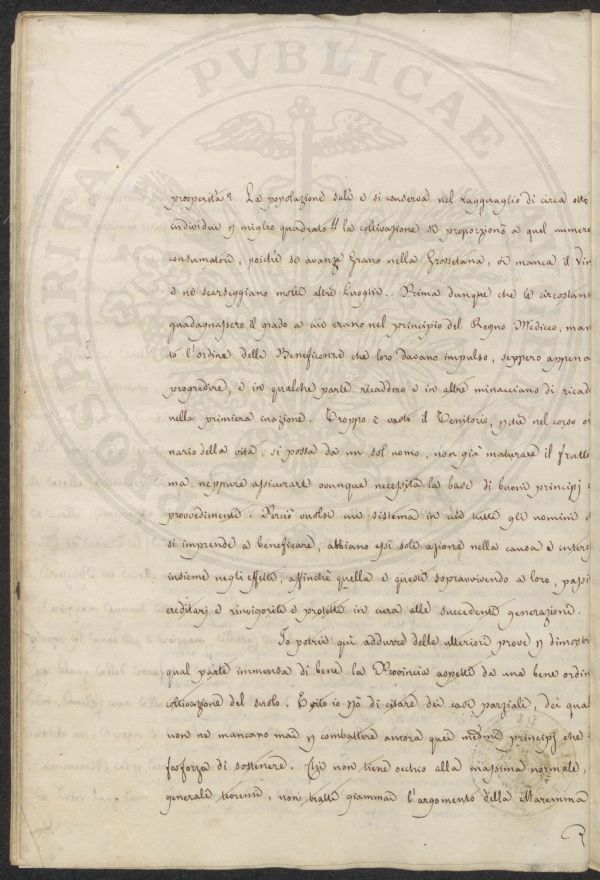 PROSPERITATI PVBLICAE
prosperità? La popolazione salì e si conserva nel ragguaglio di circa otto
individui p miglio quadrato!! la coltivazione si proporzionò a quel numero
consumatori, poichè se avanza Grano nella Grossetana, vi manca il Vin
e ne scarseggiano molti altri Luoghi. Prima dunque che le circostanz
guadagnassero il grado a cui erano nel principio del Regno Mediceo, man
to l'ordine delle Beneficenze che loro davano impulso, seppero appena
progredire, e in qualche parte ricaddero e in altre minacciano di ricad
nella primiera inazione. Troppo è vasto il Territorio, pchè nel corso or
nario della vita, si possa da un sol uomo, non già maturare il frutto
ma neppure assicurare ovunque necessita la base di buoni principj e
provvedimenti. Perciò vuolsi un sistema in cui tutti gli uomini
si imprende a beneficare, abbiano essi soli azione nella causa e inter
insieme negli effetti, affinchè quella e questi sopravvivendo a loro, pass
ereditarj e rinvigoriti e protetti in cura alle succedenti generazioni.
Io potrei quì addurre delle ulteriori prove p dimostr
qual parte immensa di bene la Provincia aspetti da una bene ordin
coltivazione del suolo. Evito io pò di citare dei casi parziali, dei qual
non ne mancano mai p combattere ancora quei medmi principj che
fa forza di sostenere. Chi non tiene occhio alla massima normale,
generali teoremi, non tratti giammai l'argomento della Maremma